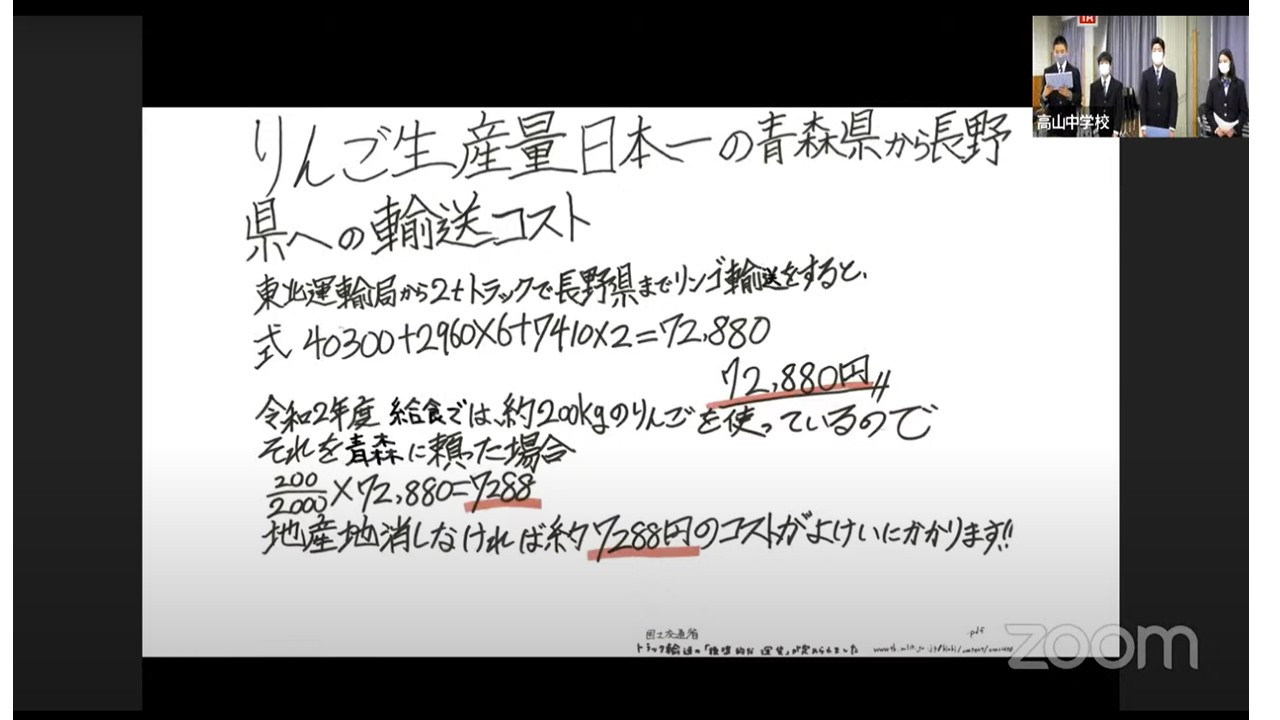 りんご生産量日本一の青森県から長野
県への輸送コスト
東北運輸局から2tトラックで長野県までリンゴ輸送をすると、
式 40300+2960×6+7410×2=72,880
72,880円
令和2年度 給食では、約200kgのりんごを使っているので
それを青森に頼った場合
200/2000×72,880=7288
地産地消しなければ約7288円のコストがよけいにかかります!!
国土交通省
トラック輸送の「標準的な運賃」が定められました
.pdf
高山中学校
zoom